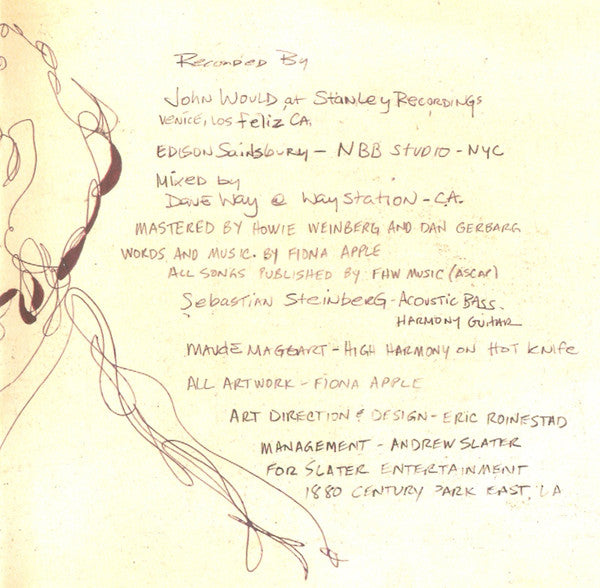 Recorded By
John Would at Stanley Recordings
Venice, Los Feliz CA.
Edison Sainsbury - NBB Studio - NYC
Mixed by
Dave Way @ Waystation - CA.
MASTERED BY HOWIE WEINBERG AND DAN GERBARG
WORDS AND MUSIC. BY FIONA APPLE
ALL SONGS PUBLISHED BY FHW MUSIC (ASCAP)
Sebastian Steinberg - Acoustic Bass
HARMONY GUITAR
MAUDE MAGGART - HIGH HARMONY ON HOT KNIFE
ALL ARTWORK - FIONA APPLE
ART DIRECTION & DESIGN - ERIC ROINESTAD
MANAGEMENT - ANDREW SLATER
FOR SLATER ENTERTAINMENT
1880 CENTURY PARK EAST, LA